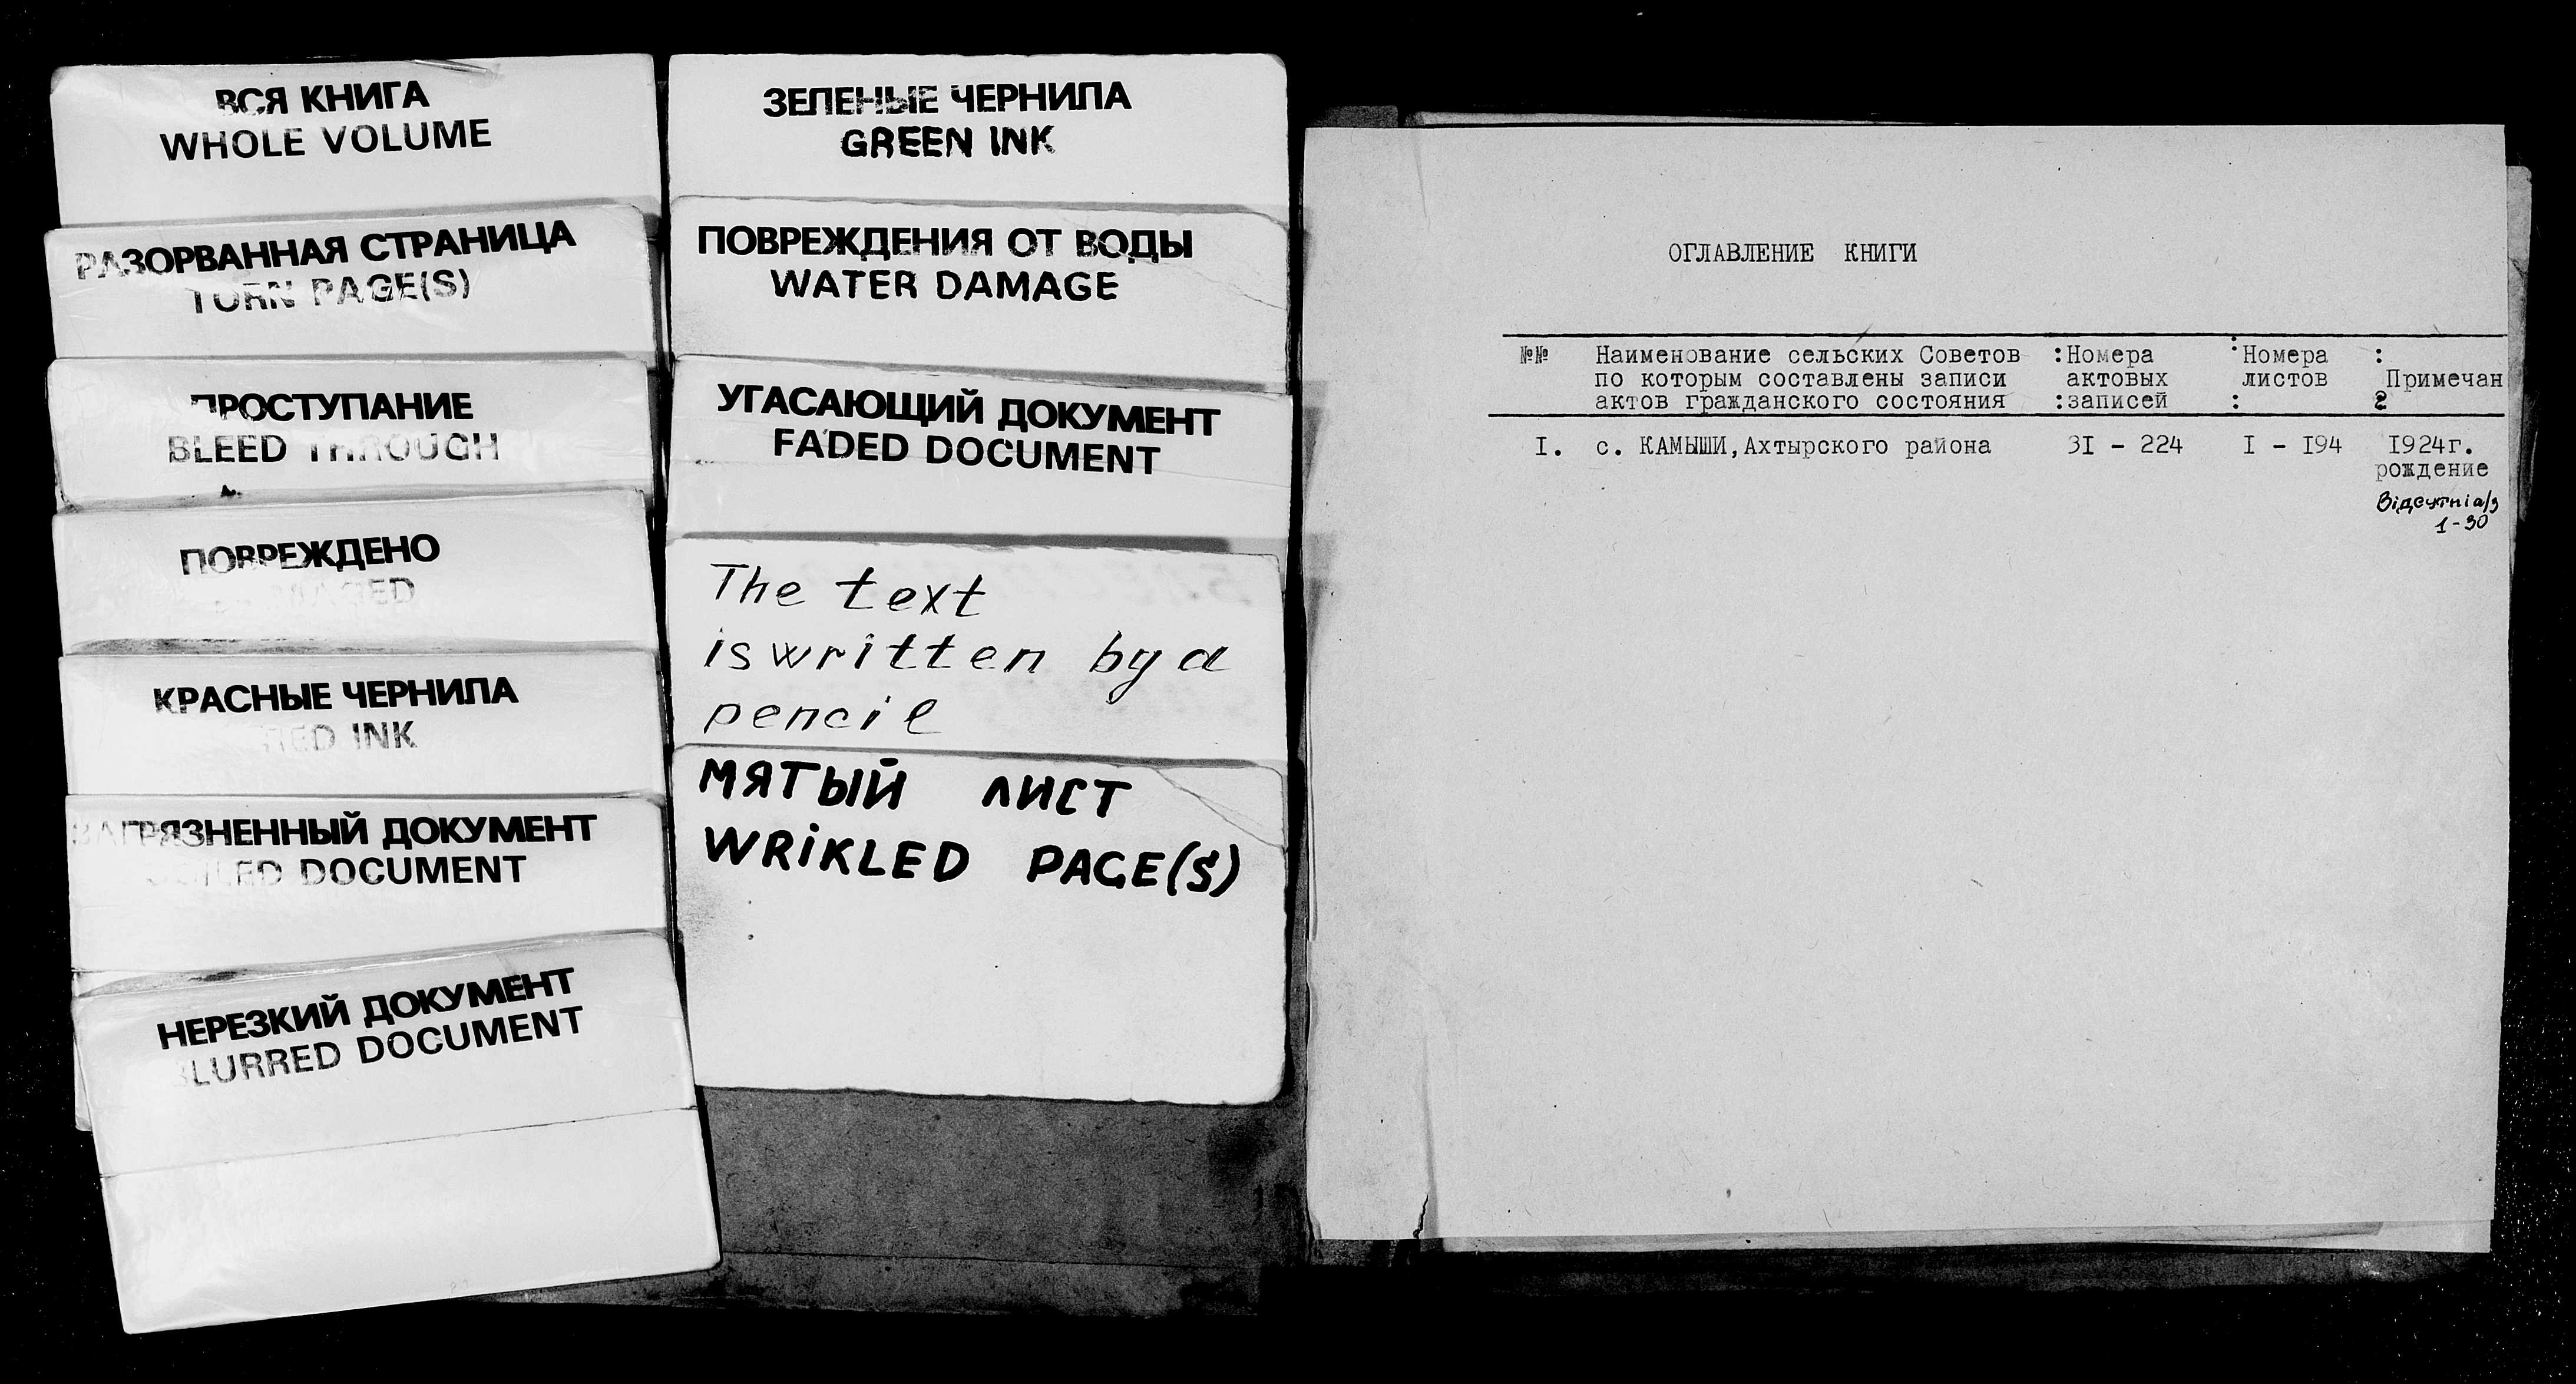 ВСЯ КНИГА
WHOLE VOLUME
РАЗОРВАННАЯ СТРАНИЦА
TORN PAGE(S)
ПРОСТУПАНИЕ
BLEED THROUGH
ПОВРЕЖДЕНО
КРАСНЫЕ ЧЕРНИЛА
RED INK
ЗАГРЯЗНЕННЫЙ ДОКУМЕНТ
SOILED DOCUMENT
НЕРЕЗКИЙ ДОКУМЕНТ
BLURRED DOCUMENT
ЗЕЛЕНЫЕ ЧЕРНИЛА
GREEN INK
ПОВРЕЖДЕНИЯ ОТ ВОДЫ
WATER DAMAGE
УГАСАЮЩИЙ ДОКУМЕНТ
FADED DOCUMENT
The text
is written by a
pencil
МЯТЫЙ ЛИСТ
WRIKLED PAGE(S)
ОГЛАВЛЕНИЕ КНИГИ
№№ Наименование сельских Советов :Номера :Номера :
по которым составлены записи актовых листов Примечан
актов гражданского состояния :записей :
I. с. КАМЫШИ, Ахтырского района 3I - 224 I - I94 I924г.
рождение
Відсутні а/з
1-30